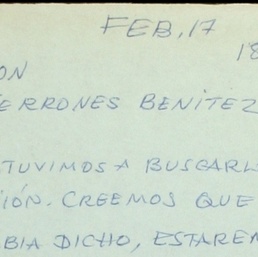 FEB, 17
18
ON
ERRONES BENITEZ
TUVIMOS A BUSCARL
IÓN. CREEMOS QUE
BIA DICHO, ESTAREM